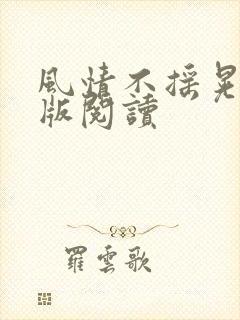 風情不摇晃
版閱讀
羅雲歌